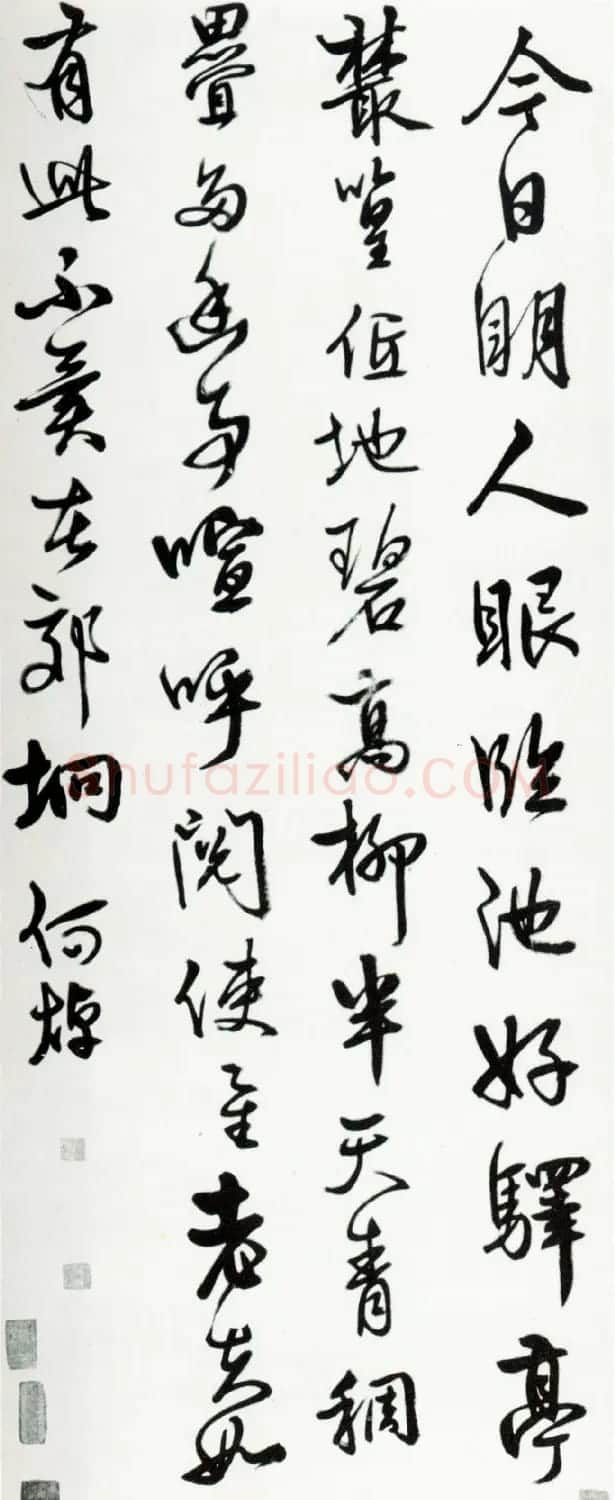 今日明人眼臨池好驛亭
叢篁低地碧高柳半天青稠
疊多幽事喧呼閱使星老夫如
有此不異在郊坰何焯
Shufaziliao.COM